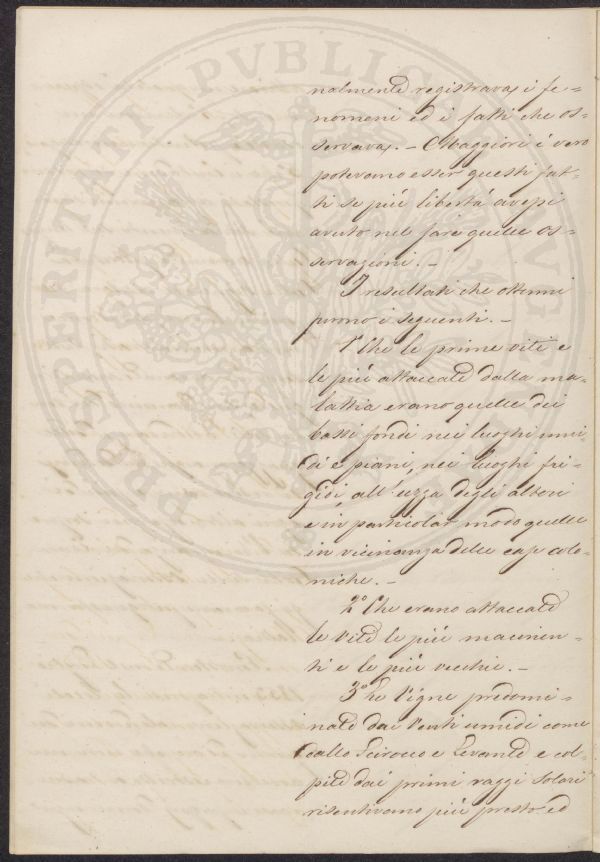 nalmente registravasi i fe-
nomeni ed i fatti che os-
servavasi. - Maggiori è vero
potevano esser questi fat-
ti se più libertà avessi
avuto nel fare quelle os-
servazioni. -
I resultati che ottenni
furono i seguenti. -
1° Che le prime viti e
le più attaccate dalla ma-
lattia erano quelle dei
bassi fondi nei luoghi umi
di e piani, nei luoghi fri-
gidi, all'uzza degli alberi
e in particolar modo quelle
in vicinanza delle case colo-
niche. -
2° Che erano attaccate
le viti le più macilen-
ti e le più vecchie. -
3° Le vigne predomi-
nate dai venti umidi come
dallo Scirocco e Levante e col-
pite dai primi raggi solari
risentivano più presto ed
PROSPERITATI PVBLICAE